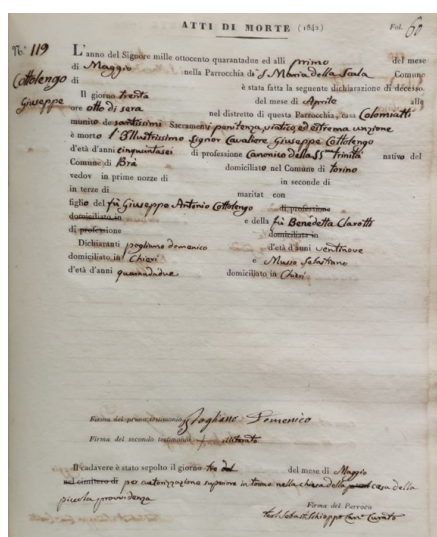 ATTI DI MORTE (1842) Fol. 60
No. 119 L'anno del Signore mille ottocento quarantadue ed alli primo del mese
di Maggio nella Parrocchia di S. Maria della Scala Comune
Cottolengo di è stata fatta la seguente dichiarazione di decesso.
Giuseppe Il giorno trenta del mese di Aprile alle
ore otto di sera nel distretto di questa Parrocchia, casa Colomiatti
munito de santissimi Sacramenti penitenza, viatico, ed estrema unzione
è morto l'Illustrissimo Signor Cavaliere Giuseppe Cottolengo
d'età d'anni cinquantasei di professione Canonico della SSma trinità nativo del
Comune di Brà domiciliato nel Comune di torino
vedov in prime nozze di in seconde di
in terze di maritat con
figlio del fù Giuseppe Antonio Cottolengo di professione
domiciliato in e della fù Benedetta Clarotti
di professione domiciliata in
Dichiaranti pogliano domenico d'età d'anni ventinove
domiciliato in Chieri e Musso Sebastiano
d'età d'anni quarandadue domiciliato in Chieri
Firma del primo testimonio Pogliano Domenico
Firma del secondo testimonio + illiterato
Il cadavere è stato sepolto il giorno tre del del mese di Maggio
nel cimitero di per autorizzazione superiore in torino nella chiesa della casa della
piccola provvidenza
Firma del Parroco
Curato